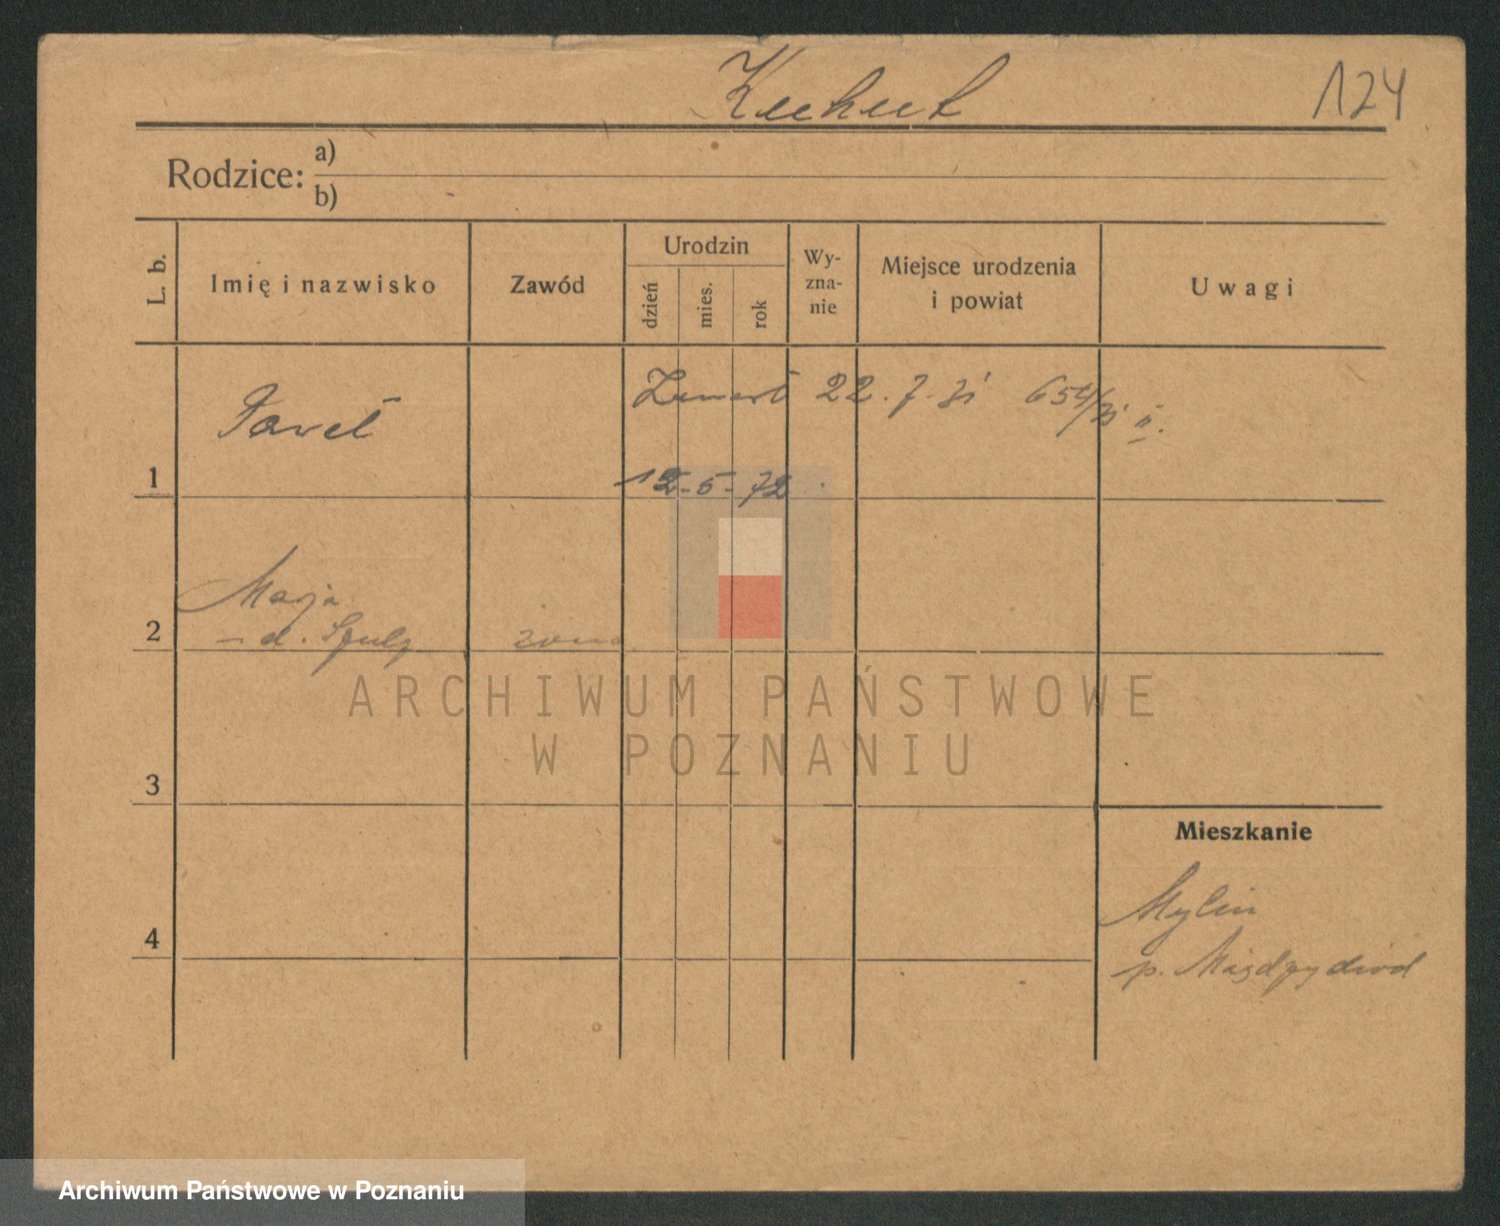 Kuhnt 124
Rodzice: a)
b)
L. b.
Imię i nazwisko
Zawód
Urodzin
dzień
mies.
rok
Wy-
zna-
nie
Miejsce urodzenia
i powiat
Uwagi
Zmarł 22.7.31 654/31 II.
Paweł
1
12-5-72
Marja
2 - d. żona
ARCHIWUM PAŃSTWOWE
W POZNANIU
3
Mieszkanie
Mylin
4
p. Międzychód
Archiwum Państwowe w Poznaniu